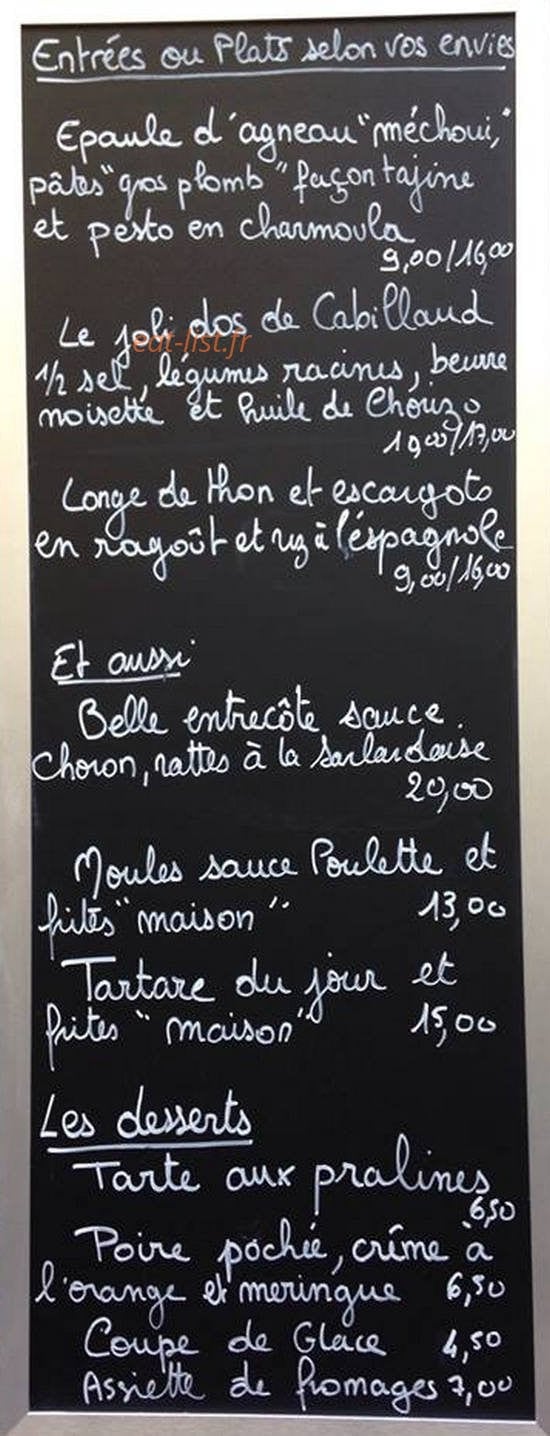 Entrées ou Plats selon vos envies
Epaule d'agneau "méchoui,"
pâtes "gros plomb" façon tajine
et pesto en charmoula
9,00/16,00
Le joli dos de Cabillaud
eat-list.fr
1/2 sel, légumes racines, beurre
noisette et huile de Chorizo
10,00/17,00
Longe de thon et escargots
en ragoût et riz à l'éspagnole
9,00/16,00
Et aussi
Belle entrecôte sauce
Choron, rattes à la Sarladaise
20,00
Moules sauce Poulette et
frites "maison" 13,00
Tartare du jour et
frites "maison" 15,00
Les desserts
Tarte aux pralines
6,50
Poire pochée, crème à
l'orange et meringue 6,50
Coupe de Glace 4,50
Assiette de fromages 7,00